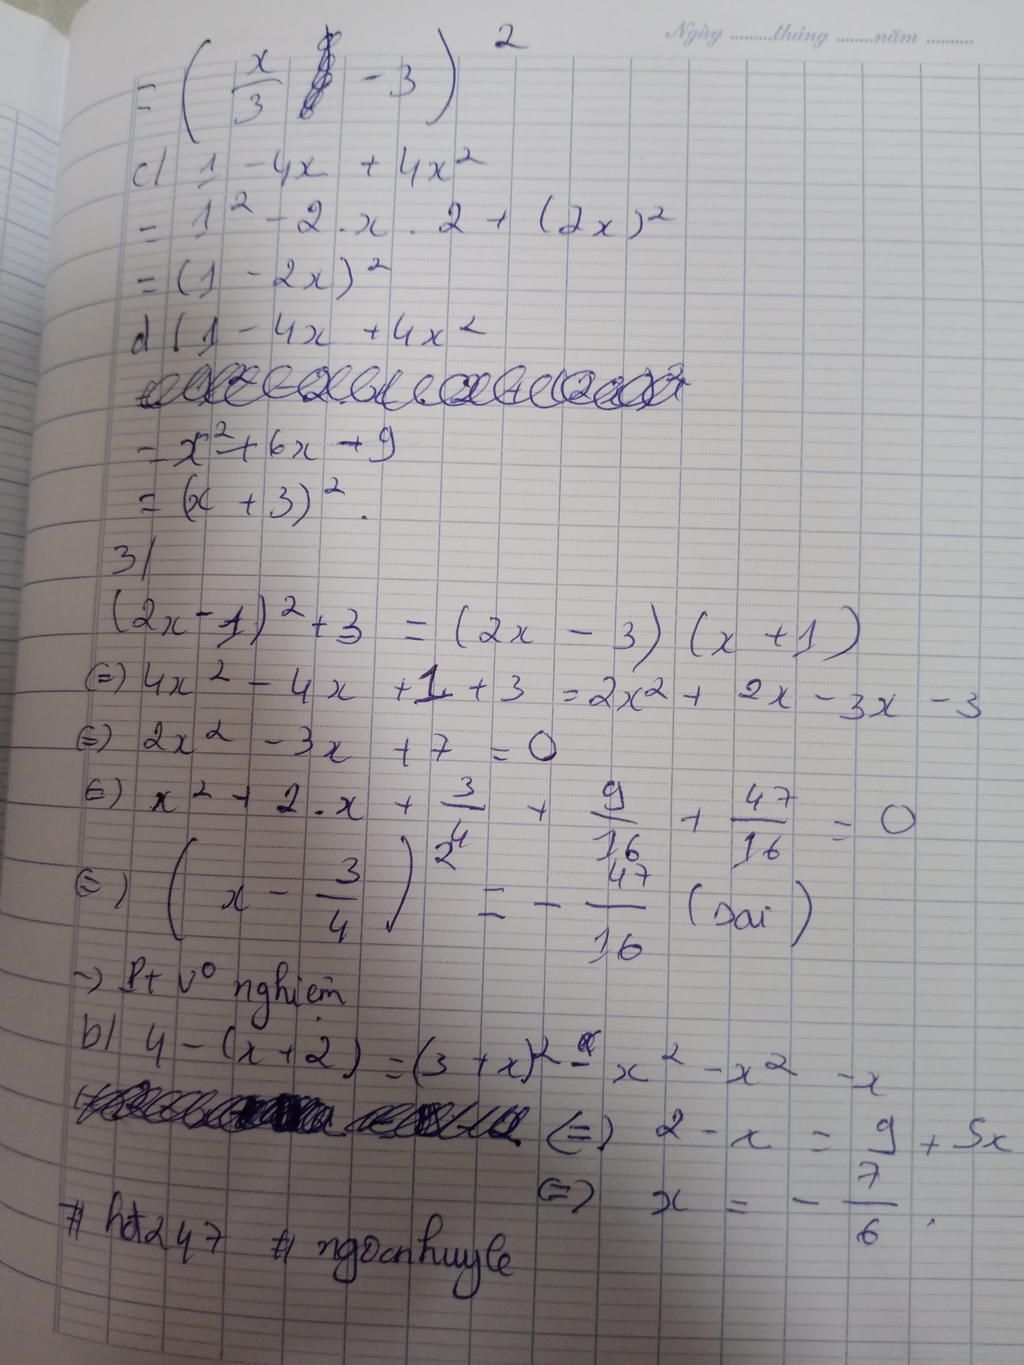 Ngày .........tháng ........năm ..........
= (x/3 - 3)²
c/ 1 - 4x + 4x²
= 1² - 2 . x . 2 + (2x)²
= (1 - 2x)²
d/ 1 - 4x + 4x²
= x² + 6x + 9
= (x + 3)² .
3/
(2x - 1)² + 3 = (2x - 3) (x + 1)
(=) 4x² - 4x + 1 + 3 = 2x² + 2x - 3x - 3
(=) 2x² - 3x + 7 = 0
(=) x² + 2 . x + 3/4 + 9/16 + 47/16 = 0
(=) (x - 3/4)² = - 47/16 (sai)
-> Pt vô nghiệm
b/ 4 - (x + 2) = (3 + x)² - x² - x² - x
(=) 2 - x = 9 + 5x
(=) x = - 7/6 .
# hđ247 # ngocnhuyle